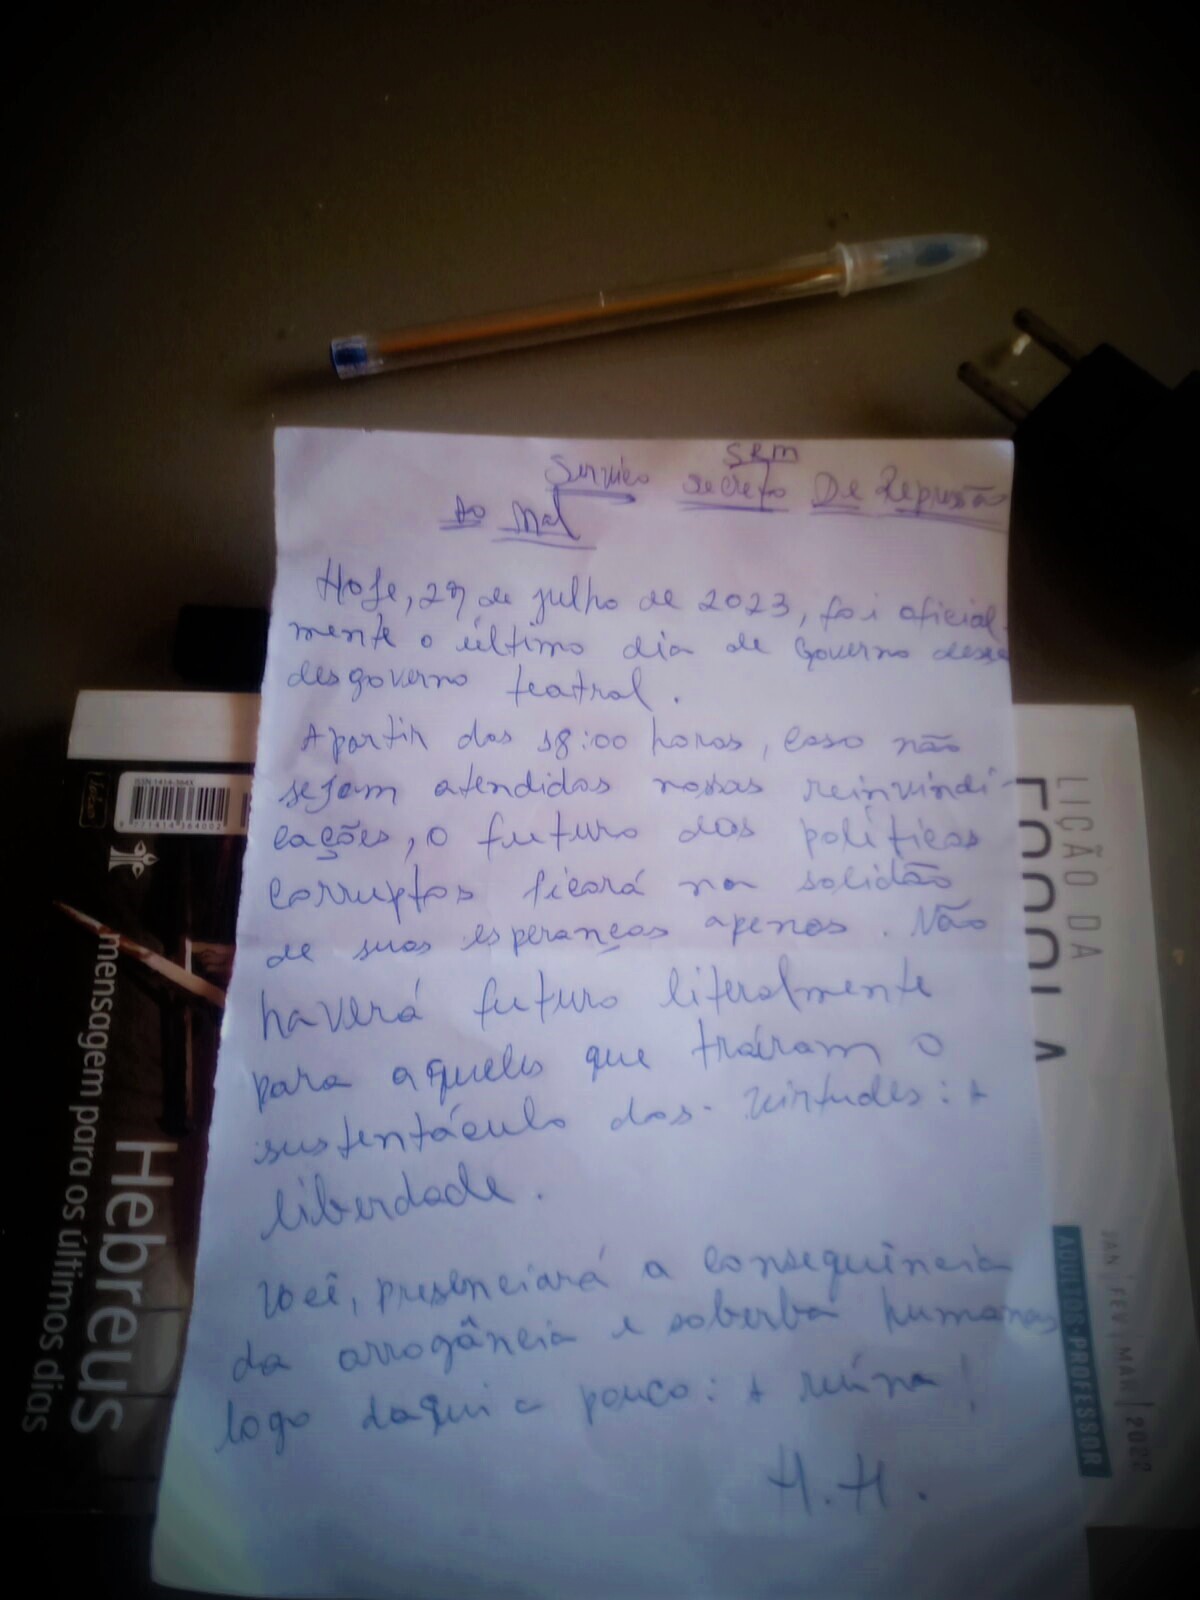 SRM
Serviço secreto De Repressão
Ao Mal
Hoje, 27 de julho de 2023, foi oficial-
mente o último dia de Governo desse
desgoverno teatral.
Apartir das 18:00 horas, caso não
sejam atendidas nossas reinvindi-
cações, o futuro dos políticos
corruptos ficará na solidão
de suas esperanças apenas. Não
haverá futuro literalmente
para aqueles que traíram o
sustentáculo das virtudes: A
liberdade.
Você, presenciará a consequência
da arrogância e soberba humanas
logo daqui a pouco: A ruína!
H.H.
ISSN 1414-364X
9 771414 364002
Hebreus
mensagem para os últimos dias
LIÇÃO DA
ESCOLA
JAN | FEV | MAR | 2022
ADULTOS · PROFESSOR